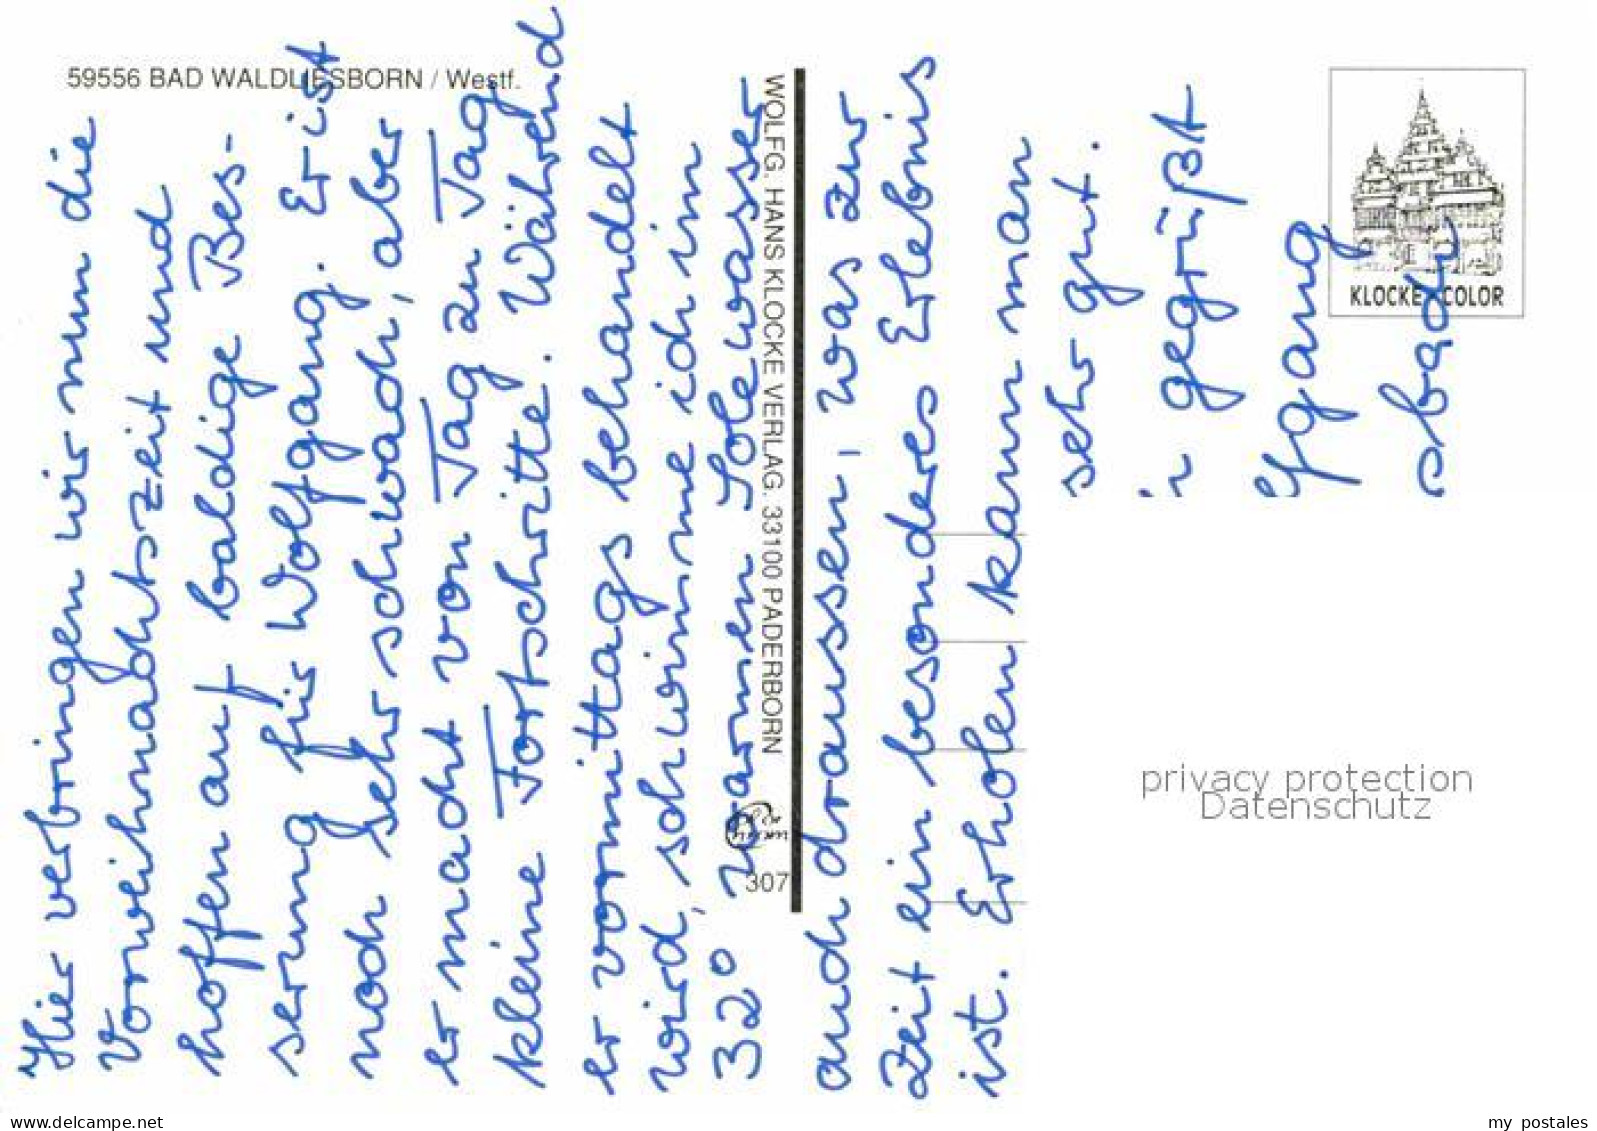 59556 BAD WALDLIESBORN / Westf.
WOLFG. HANS KLOCKE VERLAG. 33100 PADERBORN
307
KLOCKE COLOR
Hier verbringen wir nun die
Vorweihnachtszeit und
hoffen auf baldige Bes-
serung für Wolfgang. Er ist
noch sehr schwach, aber
er macht von Tag zu Tag
kleine Fortschritte. Während
er vormittags behandelt
wird, schwimme ich im
32° warmen Solewasser
auch draussen, was zur
Zeit ein besonderes Erlebnis
ist. Erholen kann man
sehr gut.
gegrüßt
privacy protection
Datenschutz
delcampe.net
my_postales